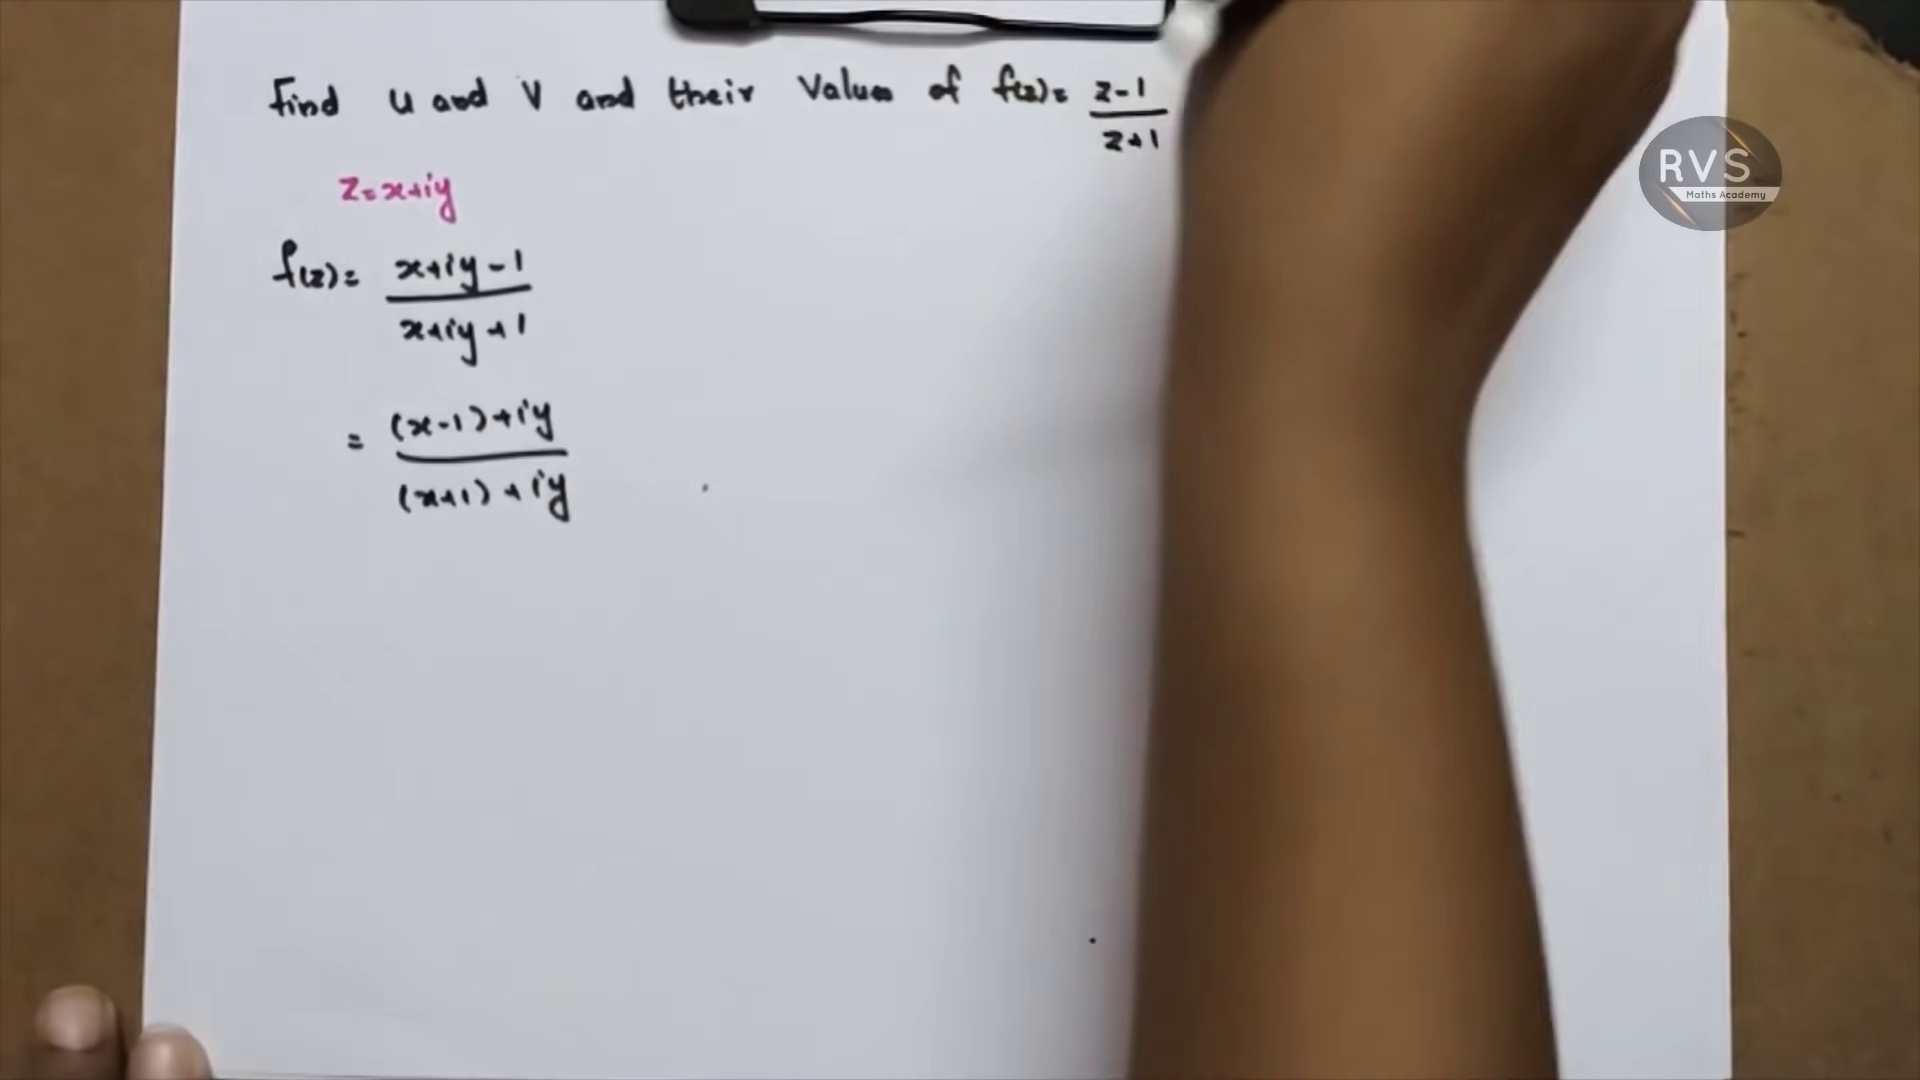 Find u and v and their values of f(z) = z-1 / z+1
z = x+iy
f(z) = x+iy-1 / x+iy+1
= (x-1)+iy / (x+1)+iy
RVS
Maths Academy